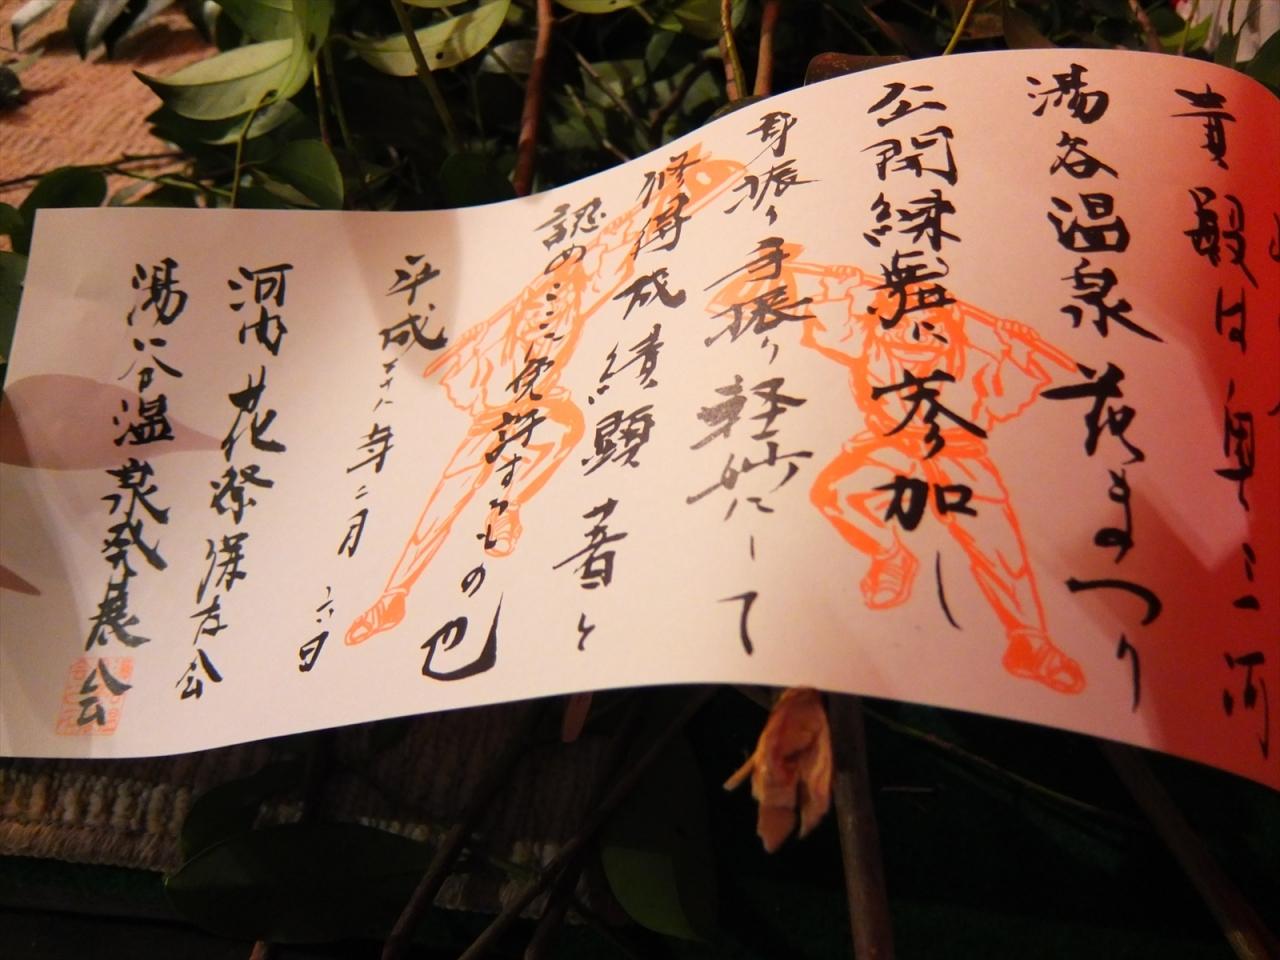 貴殿は奥三河
湯谷温泉花まつり
公開練舞に参加し
身振り手振り軽妙にして
修得成績顕著と
認めここに免許するもの也
平成二十八年二月六日
河内花祭保存会
湯谷温泉発展会